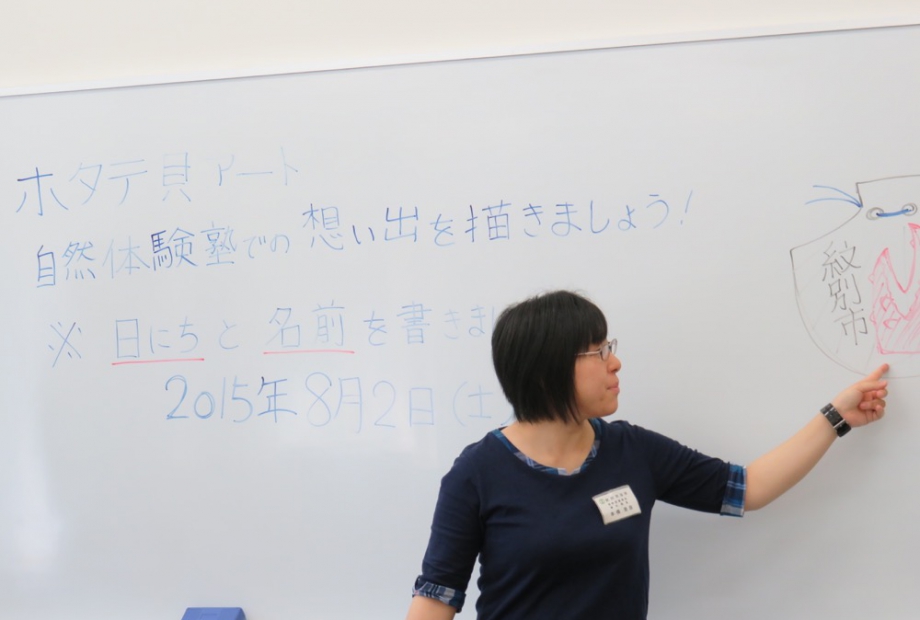 ホタテ貝アート
自然体験塾での想い出を描きましょう!
※ 日にちと名前を書きま
2015年8月2日(土)
紋別市